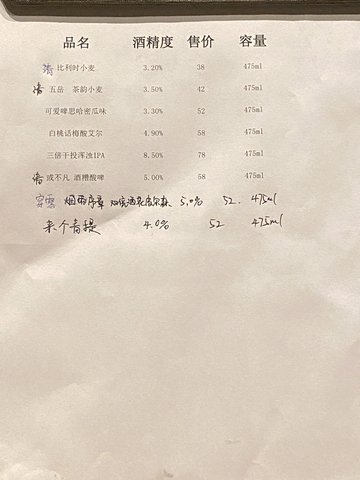 品名 酒精度 售价 容量
清 比利时小麦 3.20% 38 475ml
清 五岳 茶韵小麦 3.50% 42 475ml
可爱啤思哈密瓜味 3.30% 52 475ml
白桃话梅酸艾尔 4.90% 58 475ml
三倍干投浑浊IPA 8.50% 78 475ml
清 或不凡 酒糟酸啤 5.00% 58 475ml
烟雨序章 皮尔森 5.0% 52. 475ml
来个青提 4.0% 52 475ml